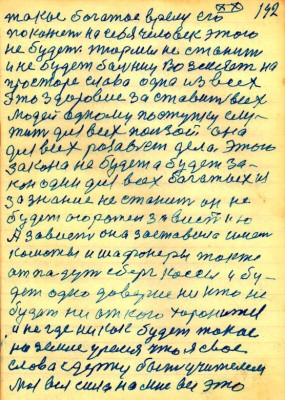 XX 192
такое богатое время его
покажет на себя человек этого
не будет. тюрьмы не станит
и не будет больницы
просторе слова одна из всех
Это здоровие заставит всех
людей одному поступку слу-
жит для всех пользой она
для всех розавьет дела. Этого
закона не будет а будет за-
кон один для всех богатых
за знание не станит он не
будет огорожен завистию
А зависть она заставила
комоты и шафонеры также
отпадут сберг кассы и бу-
дет одно доверие ни кто не
будет ни от кого хоронится
и не где ни как будет такое
на земле время что я свое
слова здержу быть учителем
Моя вся сила на мне все это